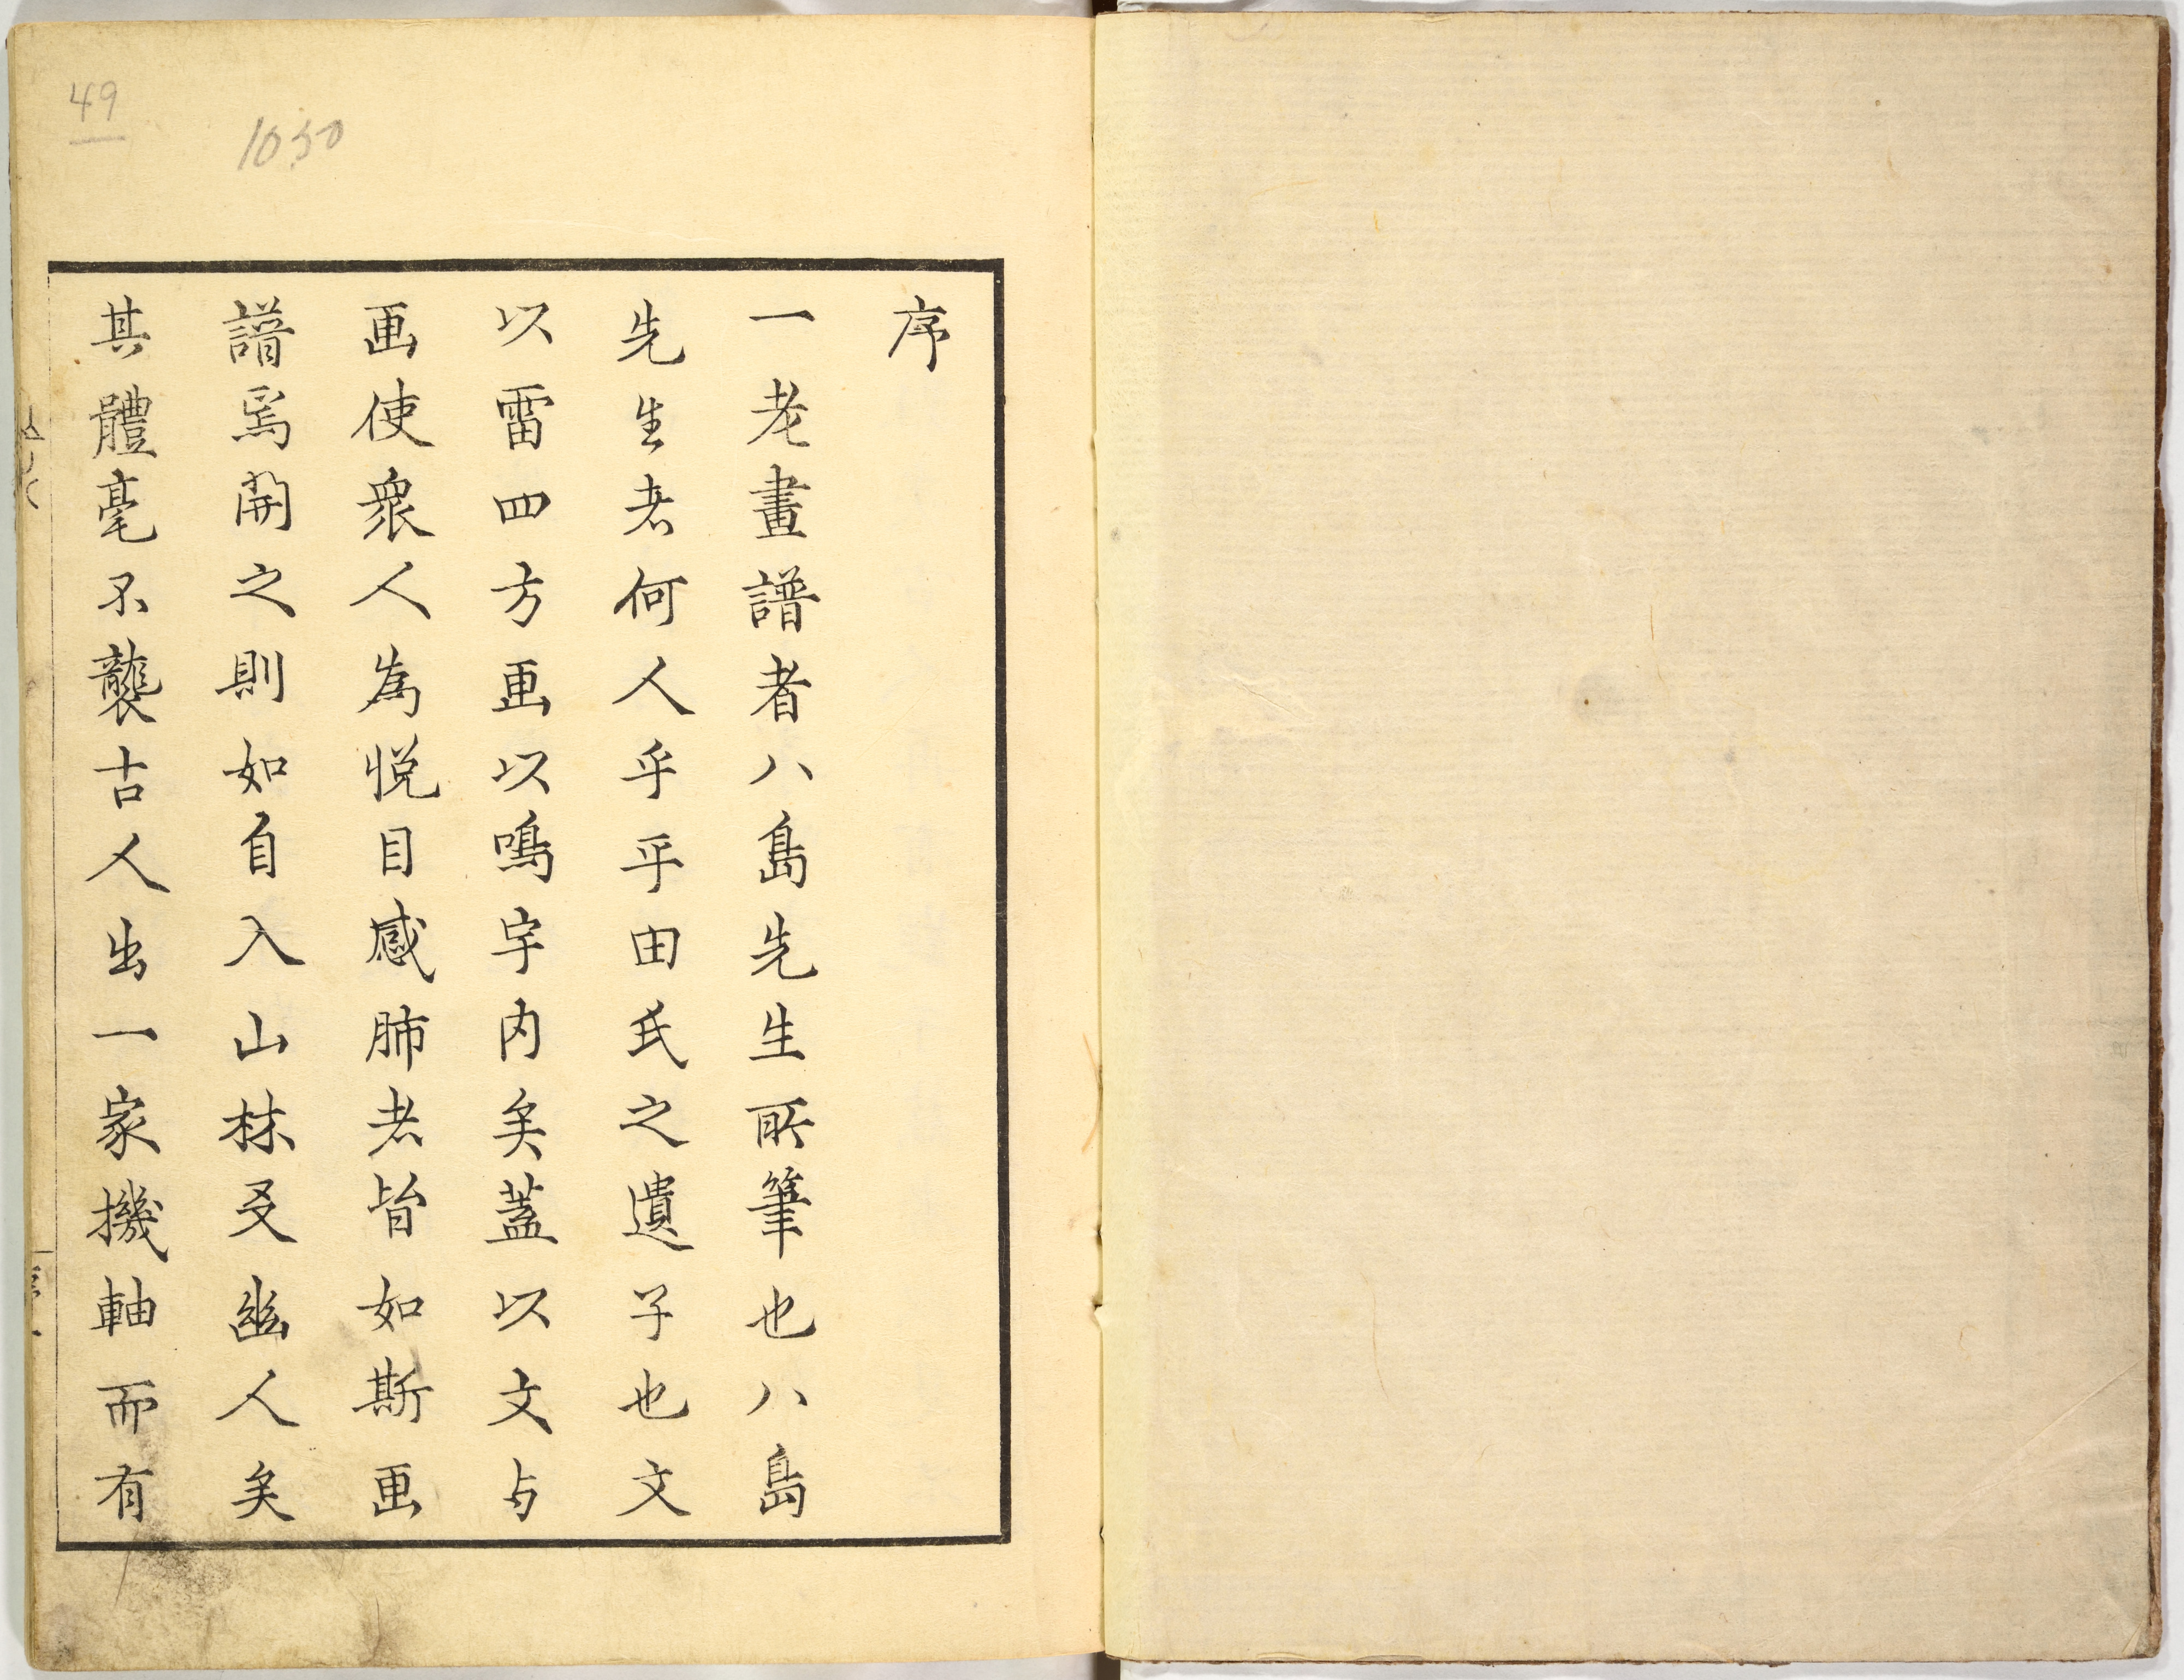 序
一老畫譜者八島先生所筆也八島
先生者何人乎平田氏之遺子也文
以雷四方画以鳴宇内矣蓋以文与
画使衆人為悦目感肺者皆如斯画
譜焉開之則如自入山林友幽人矣
其體毫不襲古人出一家機軸而有
49
1050